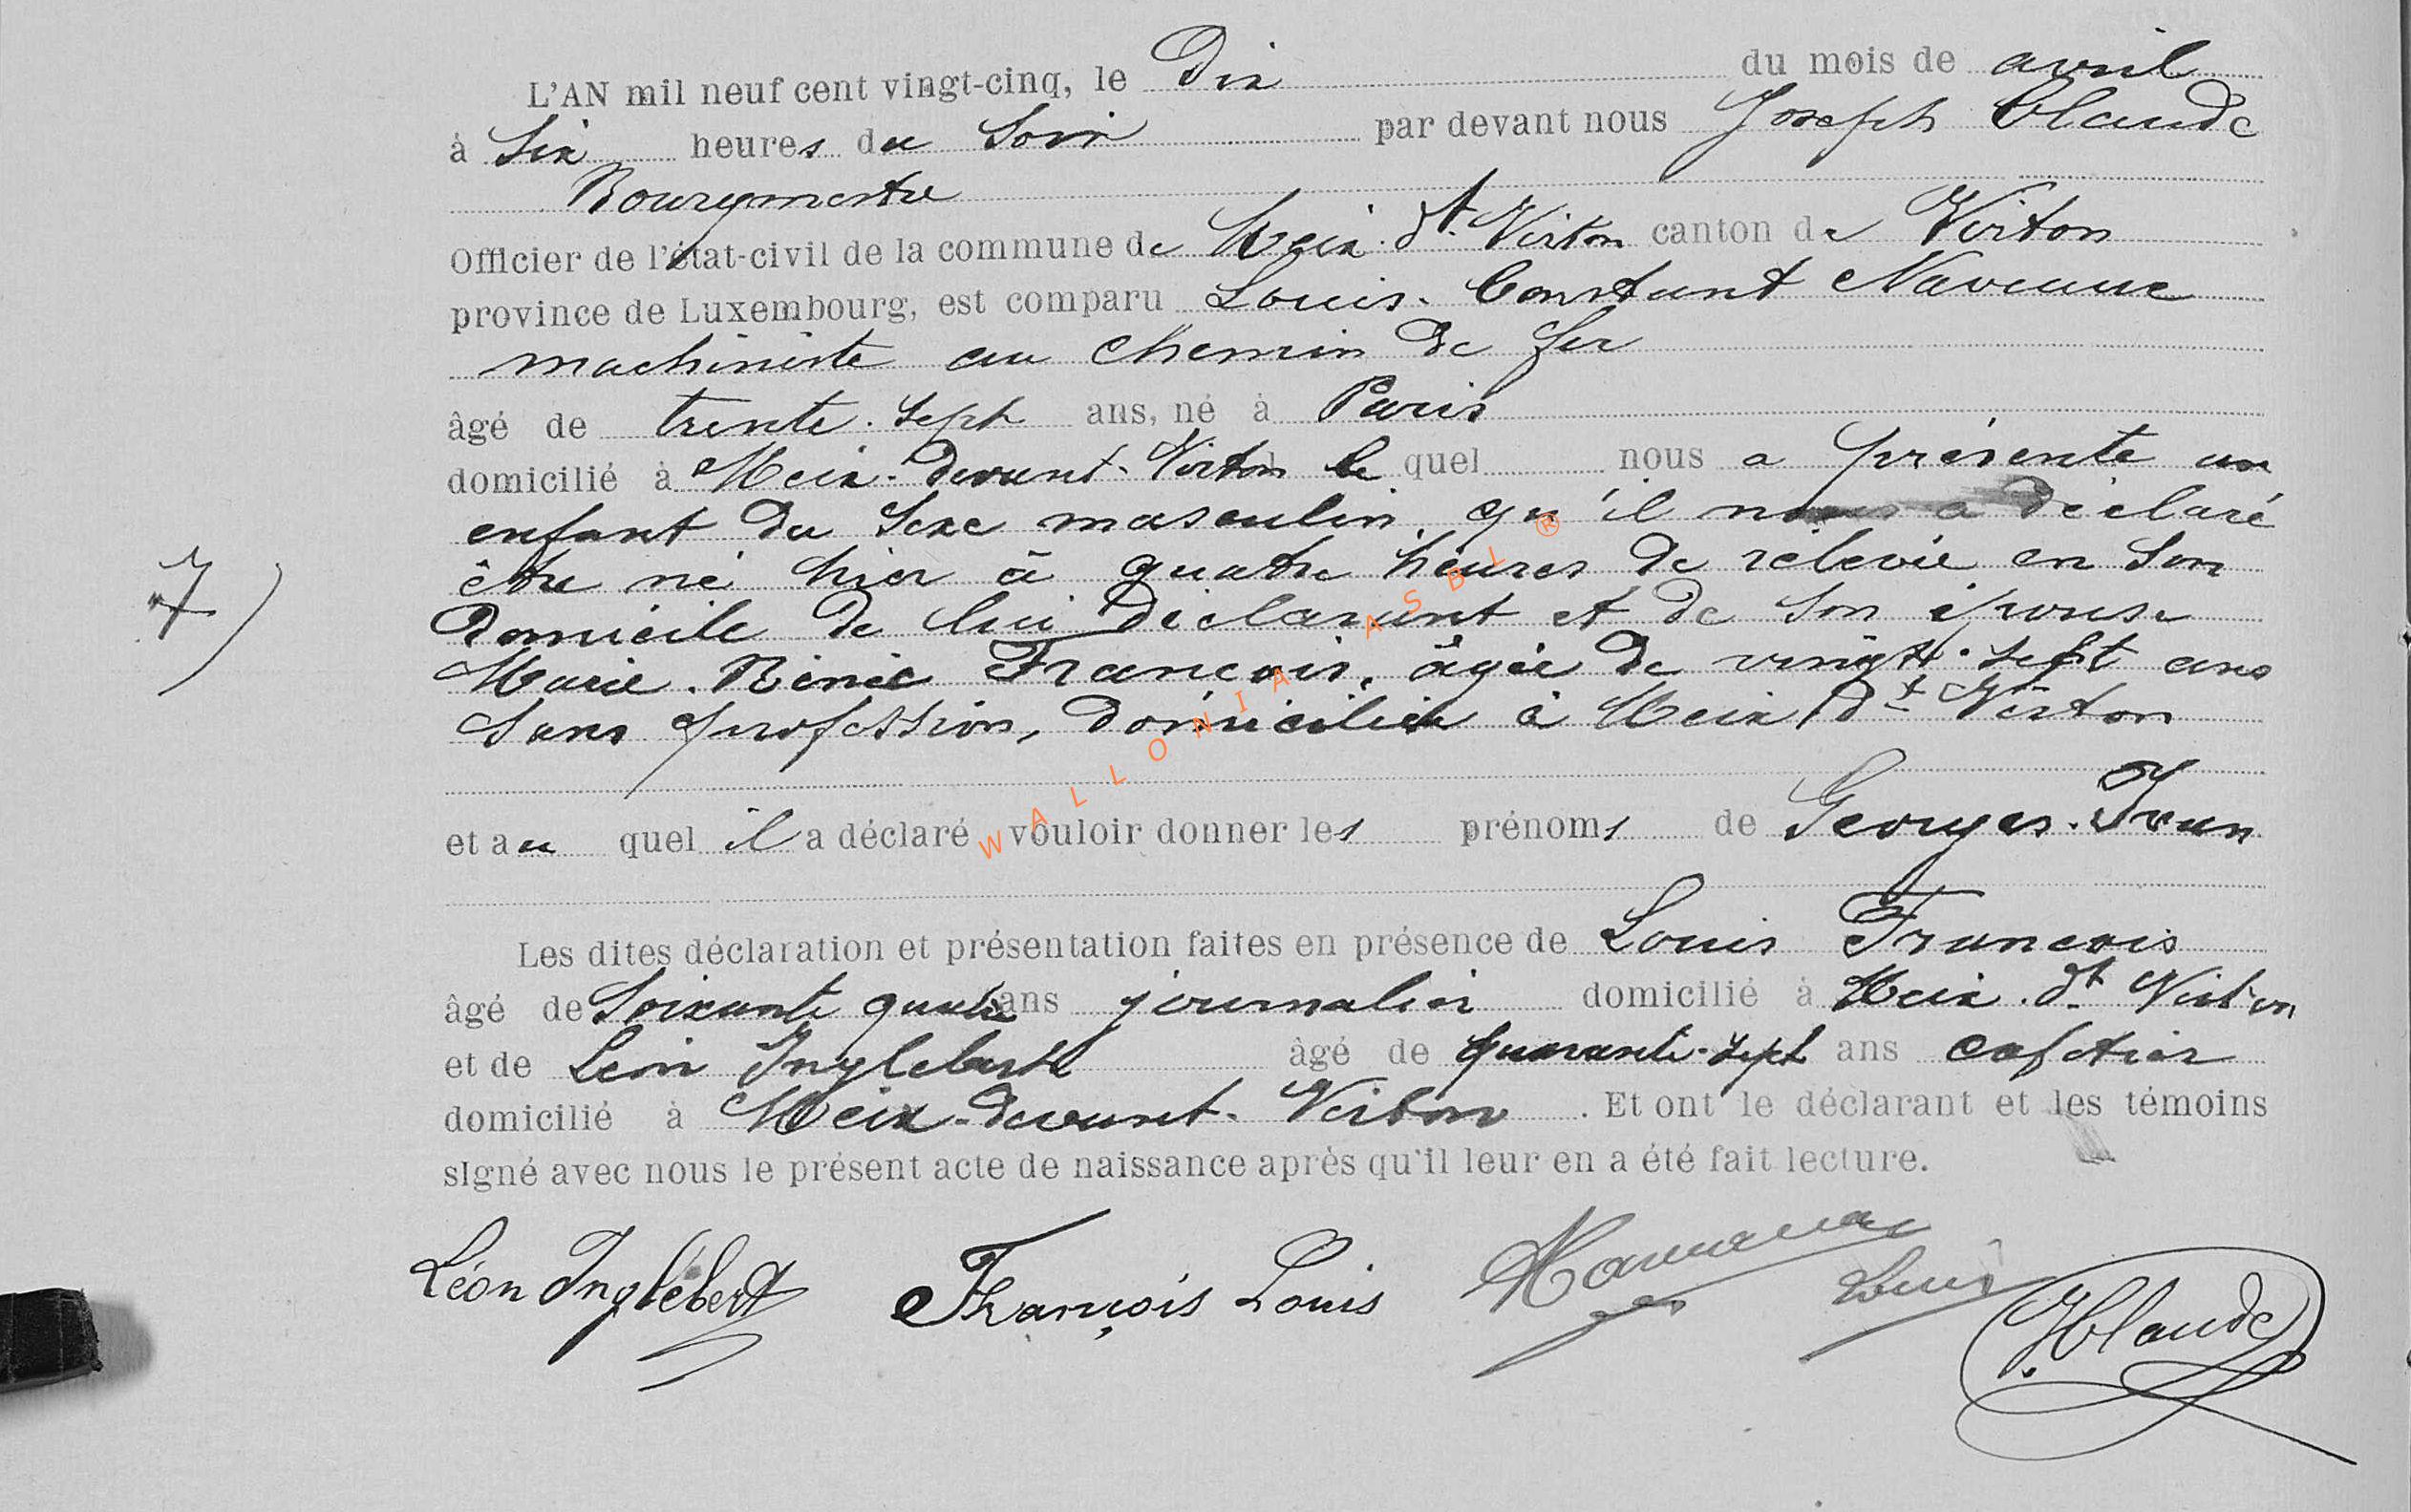 L'AN mil neuf cent vingt-cinq, le Dix du mois de avril
à Six heures du Soir par devant nous Joseph Claude
Bourgmestre
Officier de l'état-civil de la commune de Meix dt Virton canton de Virton
province de Luxembourg, est comparu Louis. Constant
machiniste au chemin de fer
âgé de trente. Sept ans, né à Paris
domicilié à Meix-devant-Virton le quel nous a présenté un
enfant du Sexe masculin, qu'il nous a déclaré
être né hier à quatre heures de relevée en Son
domicile de lui déclarant et de Son épouse
Marie. Rénée François, âgée de vingt-sept ans
Sans profession, domiciliée à Meix dt Virton
et au quel il a déclaré vouloir donner les prénoms de Georges. Ivan
Les dites déclaration et présentation faites en présence de Louis François
âgé de Soixante quatre ans journalier domicilié à Meix. dt Virton
et de Léon Inglebert âgé de quarante-sept ans cafetier
domicilié à Meix-devant-Virton. Et ont le déclarant et les témoins
signé avec nous le présent acte de naissance après qu'il leur en a été fait lecture.
7)
Léon Inglebert François Louis Louis JClaude
WALLONIA ASBL ®